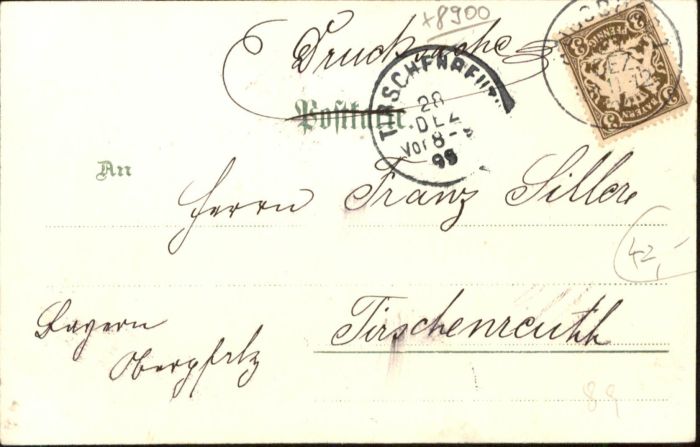 +8900
Drucksache
Postkarte.
TIRSCHENREUTH
20
DEZ
Vor 8-9
99
3
PFENNIG
BAYERN
An
Herrn Franz Sillere
42,-
Bayern
Oberpfalz
Tirschenreuth
89